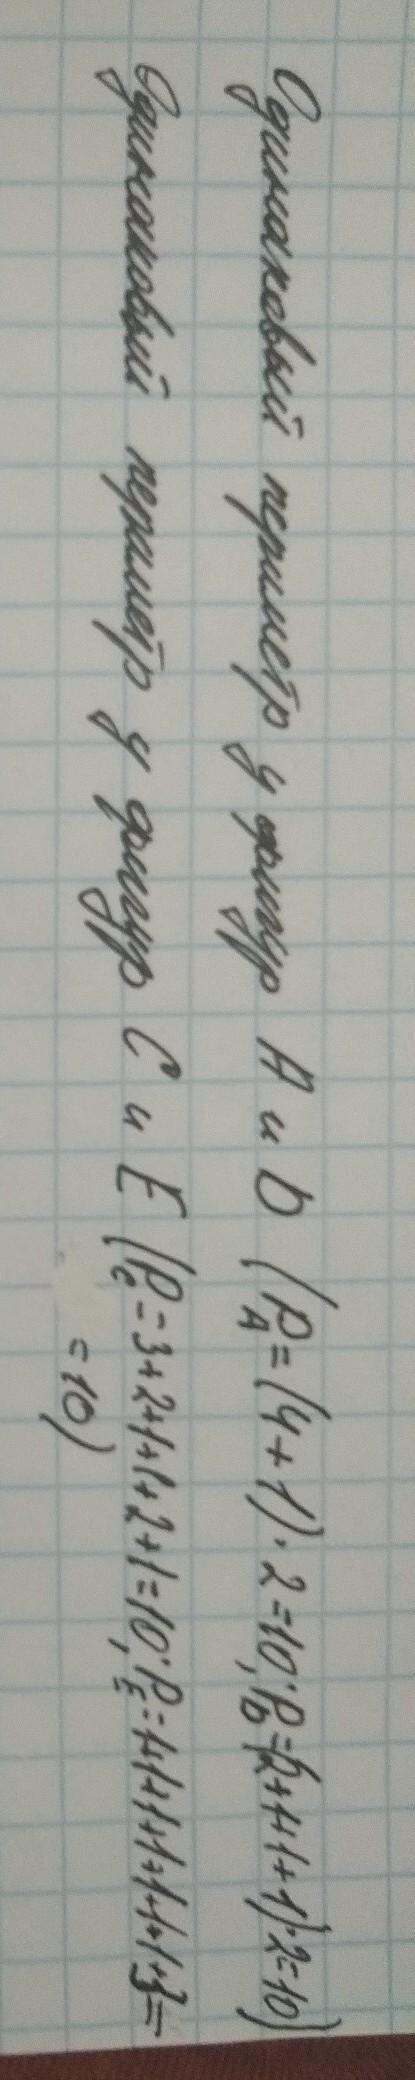 Одинаковый периметр у фигур A и D (P_A=(4+1)·2=10; P_D=(2+1+1+1)·2=10)
Одинаковый периметр у фигур C и E (P_C=3+2+1+1+2+1=10; P_E=1+1+1+1+1+1+1+3=
=10)